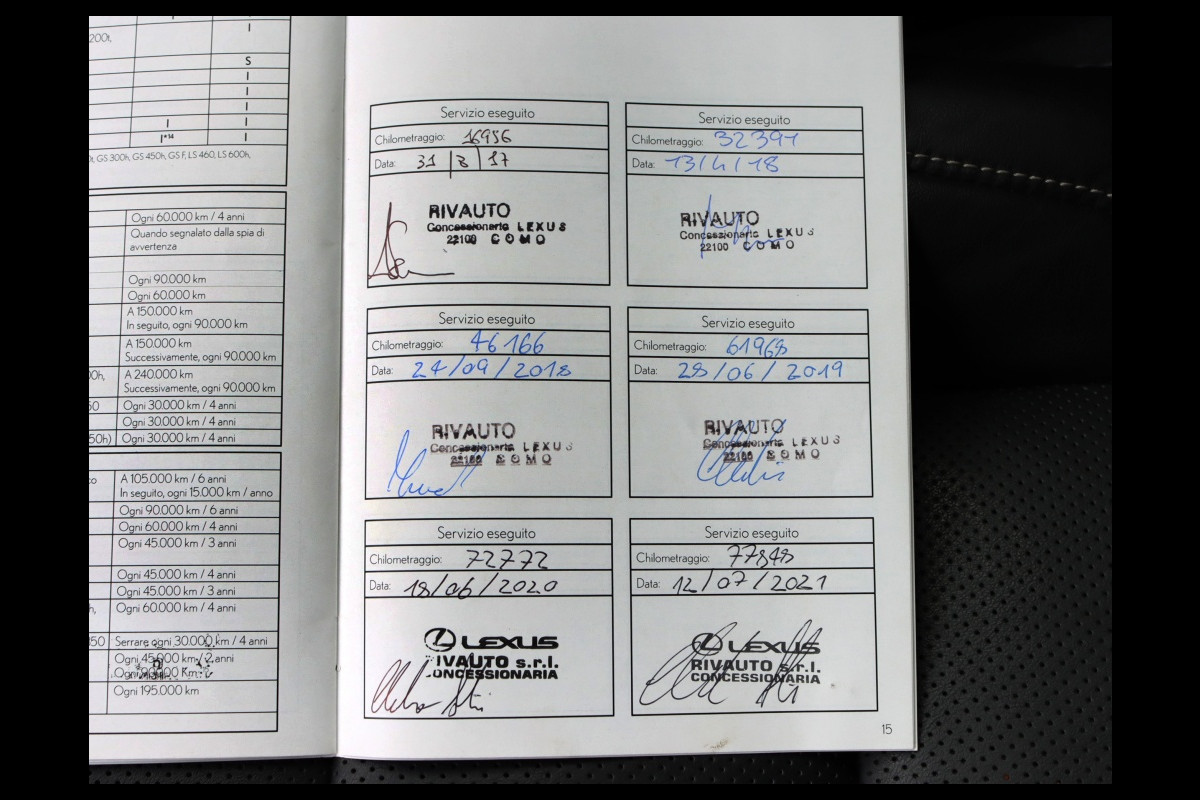 200t,
I
S
I
I
I
I I
I*14 I
GS 300h, GS 450h, GS F, LS 460, LS 600h,
Ogni 60.000 km / 4 anni
Quando segnalato dalla spia di
avvertenza
Ogni 90.000 km
Ogni 60.000 km
A 150.000 km
In seguito, ogni 90.000 km
A 150.000 km
Successivamente, ogni 90.000 km
00h, A 240.000 km
Successivamente, ogni 90.000 km
Ogni 30.000 km / 4 anni
Ogni 30.000 km / 4 anni
50h) Ogni 30.000 km / 4 anni
A 105.000 km / 6 anni
In seguito, ogni 15.000 km / anno
Ogni 90.000 km / 6 anni
Ogni 60.000 km / 4 anni
Ogni 45.000 km / 3 anni
Ogni 45.000 km / 4 anni
Ogni 45.000 km / 3 anni
h, Ogni 60.000 km / 4 anni
350 Serrare ogni 30.000 km / 4 anni
Ogni 45.000 km / 2 anni
Ogni 90.000 Km
Ogni 195.000 km
Servizio eseguito
Chilometraggio: 16956
Data: 31/8/17
RIVAUTO
Concessionaria LEXUS
22100 COMO
Servizio eseguito
Chilometraggio: 32391
Data: 13/4/18
RIVAUTO
Concessionaria LEXUS
22100 COMO
Servizio eseguito
Chilometraggio: 46166
Data: 24/09/2018
RIVAUTO
Concessionaria LEXUS
22100 COMO
Servizio eseguito
Chilometraggio: 61968
Data: 28/06/2019
RIVAUTO
Concessionaria LEXUS
22100 COMO
Servizio eseguito
Chilometraggio: 72772
Data: 18/06/2020
LEXUS
IVAUTO s.r.l.
ONCESSIONARIA
Servizio eseguito
Chilometraggio: 77848
Data: 12/07/2021
LEXUS
RIVAUTO s.r.l.
CONCESSIONARIA
15